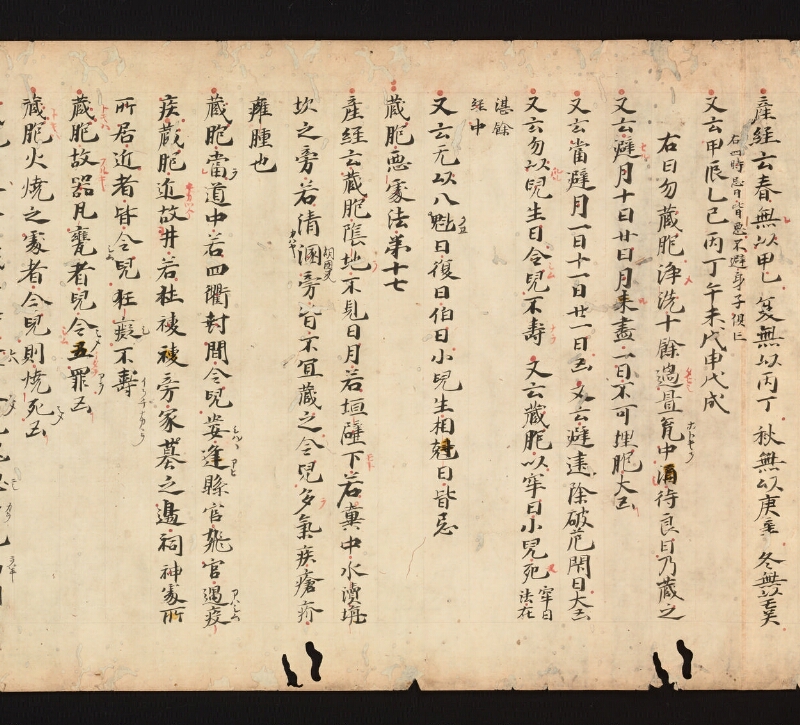 産経云春無以甲乙夏無以丙丁秋無以庚辛冬無以壬癸
右四時忌日皆惡不避身子俱亡
又云甲辰乙巳丙丁午未戊申戊戌
右日勿蔵胞浄洗十餘過置瓫中須待良日乃蔵之
又云避月十日廿日月未盡一日不可埋胞大凶
又云當避月一日十一日廿一日凶又云避建除破危閇日大凶
又云勿以兒生日令兒不壽又云蔵胞以牢日小兒死牢日法在
湛餘經中
又云无以八魁日復日伯日小兒生相尅日皆忌
蔵胞惡處法第十七
産経云蔵胞隂地不見日月若垣壁下若糞中水瀆埆
坎之旁若清溷旁皆不宜蔵之令兒多氣疾瘡疥
雍腫也
蔵胞當道中若四衢封間令兒妄逢縣官飛官遇疫
疾蔵胞近故井若社稷旁冢墓之邊祠神處所
所居近者皆令兒狂癡不壽
蔵胞故器凡甕者兒令五罪凶
蔵胞火燒之處者令兒則燒死凶